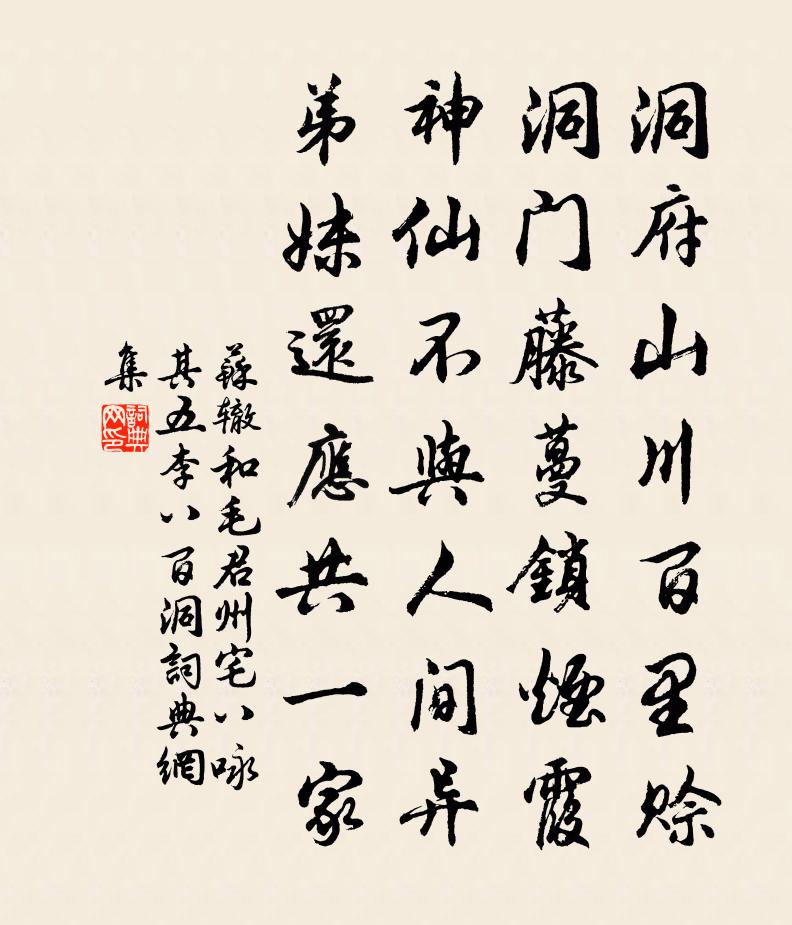 洞府山川百里賒
洞门藤蔓鎖煙霞
神仙不與人间异
弟妹還應共一家
蘇辙和毛君州宅八咏
其五李八百洞詞典網
集
詞典网印